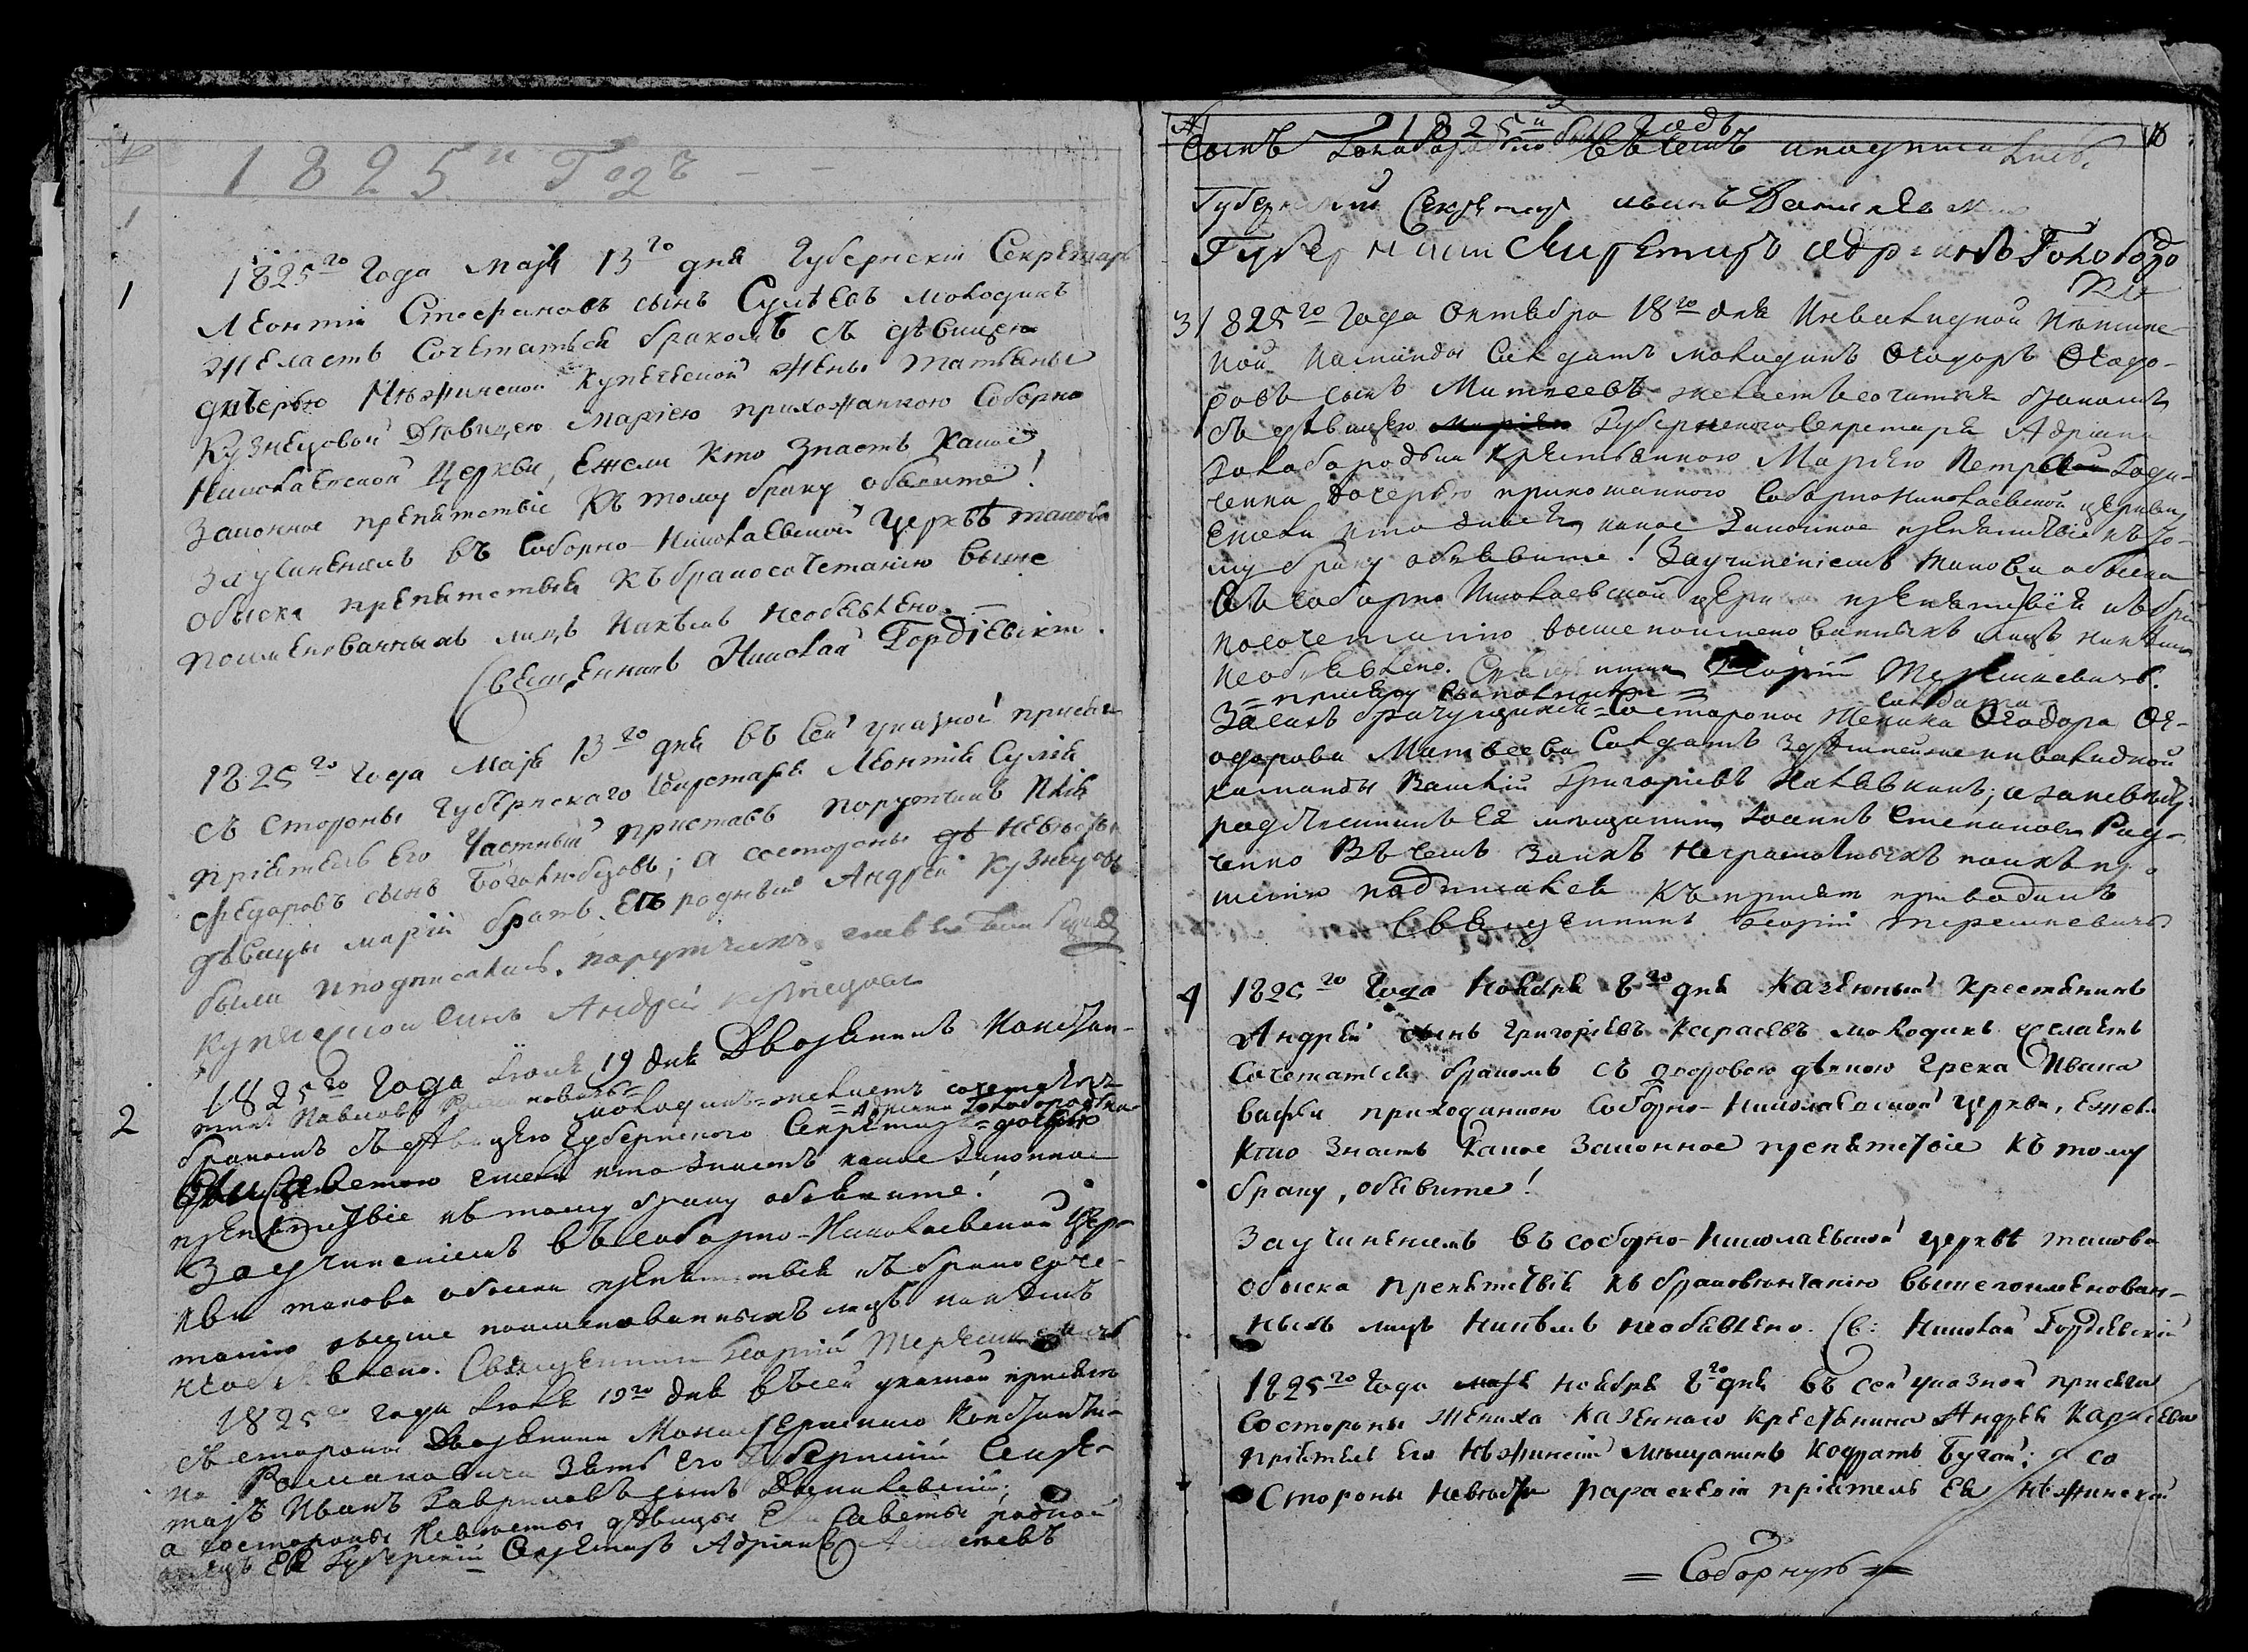 1825й Годъ
1
1
1825го Года Маја 13го дня Губернскій Секретарь
Леонтій Стефановъ сынъ Сулѣевъ молодикъ
желаетъ сочетаться бракомъ съ дѣвицею
дщерью Нѣжинской купеческой жены Татьяны
Кузнецовой дѣвицею Маріею прихожанкою Соборно
Николаевской Церкви, Ежели кто знаетъ какое
законное препятствіе къ тому браку объявите!
За учиненіемъ въ Соборно-Николаевской Церквѣ такова
обыска препятствія къ бракосочетанію выше
поименованныхъ лицъ никѣмъ необъявлено.
Священникъ Николай Гордіевскій.
1825го Года Маја 13го дня въ сей указной присягѣ
съ стороны Губернскаго Секретаря Леонтія Сулѣя
пріятель его Частный приставъ порутчикъ
Федоровъ сынъ Боголюбцовъ; а состороны невѣсты
дѣвицы Маріи братъ Ея родный Андрей Кузнецовъ
были и подписались. порутчикъ
купеческой синъ Андрей Кузнецовъ
2
1825го Года Іюля 19 дня Дворянинъ Констан-
тинъ Павловъ молодикъ желаетъ сочетаться
бракомъ съ дѣвицею Губернского Секретаря Адріана Голобородька дочерью
Елисаветою ежели кто знаетъ какое законное
препятствіе къ тому браку объявите!
За учиненіемъ въ Соборно-Николаевской Цер-
кви такова обыска препятствія къ бракосоче-
танію выше поименованныхъ лицъ никѣмъ
необъявлено. Священникъ Георгій Терешкевичъ
1825го года Іюля 19го дня въ сей указной присягѣ
съ стороны Дворянина Константи-
на Романовича зять его Губернскій Секре-
таръ Иванъ Гавриловъ сынъ Данилевскій;
а состороны невѣсты дѣвицы Елисаветы родной
отецъ Ея Губернскій Секретарь Адріанъ Алексѣевъ
1825й годъ
сынъ Голобородько въ чемъ и подписались
Губернскій Секретарь Иванъ Данилевский
Губернский Секретаръ Адріанъ Голобородо
ко
3
1825го Года Октября 18го дня Инвалидной Нѣжин-
ской команды Солдатъ молодикъ Феодоръ Феодо-
ровъ сынъ Матвеевъ желаетъ сочитатся бракомъ
съ дѣвицею Губернского Секретаря Адріана
Голобородьки крестьянкою Маріею
ченка дочерью прихожанкою Соборно Николаевской церкви,
ежели кто знаетъ какое законное препятствіе къ то-
му браку объявите! За учиненіемъ такова обыска
въ Соборно Николаевской церкви препятствія къ бра-
косочетанію вышепоименованныхъ лицъ никѣмъ
необъявлено. Священникъ Георгій Терешкевичъ.
присягу выполнили
За сихъ брачущихся состороны жениха солдата Феодора Фе-
одорова Матвеева Солдатъ здѣшнейже инвалидной
команды Василій Григоріевъ; а за невѣсту
родственникъ Ея мещанинъ Іоанъ Степановъ Рад-
ченко Въ чемъ за нихъ неграмотныхъ по ихъ про-
шенію подписался къ присягѣ приводилъ
Священникъ Георгій Терешкевичъ
4
1825го Года Ноября 8го дня Казенный Крестянинъ
Андрей сынъ Григоріевъ Карасевъ молодикъ желаетъ
сочетатся бракомъ съ дворовою дѣвкою грека Ивана
прихожанкою Соборно-Николаевской Церкви, Ежели
кто знаетъ какое законное препятствіе къ тому
браку, объявите!
За учиненіемъ въ соборно-Николаевской церквѣ такова
обыска препятствія къ браковѣнчанію вышепоименован-
ныхъ лицъ никѣмъ необъявлено. Св: Николай Гордіевскій
1825го Года Ноября 8го дня въ сей указной присягѣ
состороны жениха казеннаго крестьянина Андрея Карасева
пріятель Его Нѣжинскій мѣщанинъ Кодратъ Бугай; а со
стороны невѣсты Параскевіи пріятель Ея Нѣжинской
= Соборнуъ =